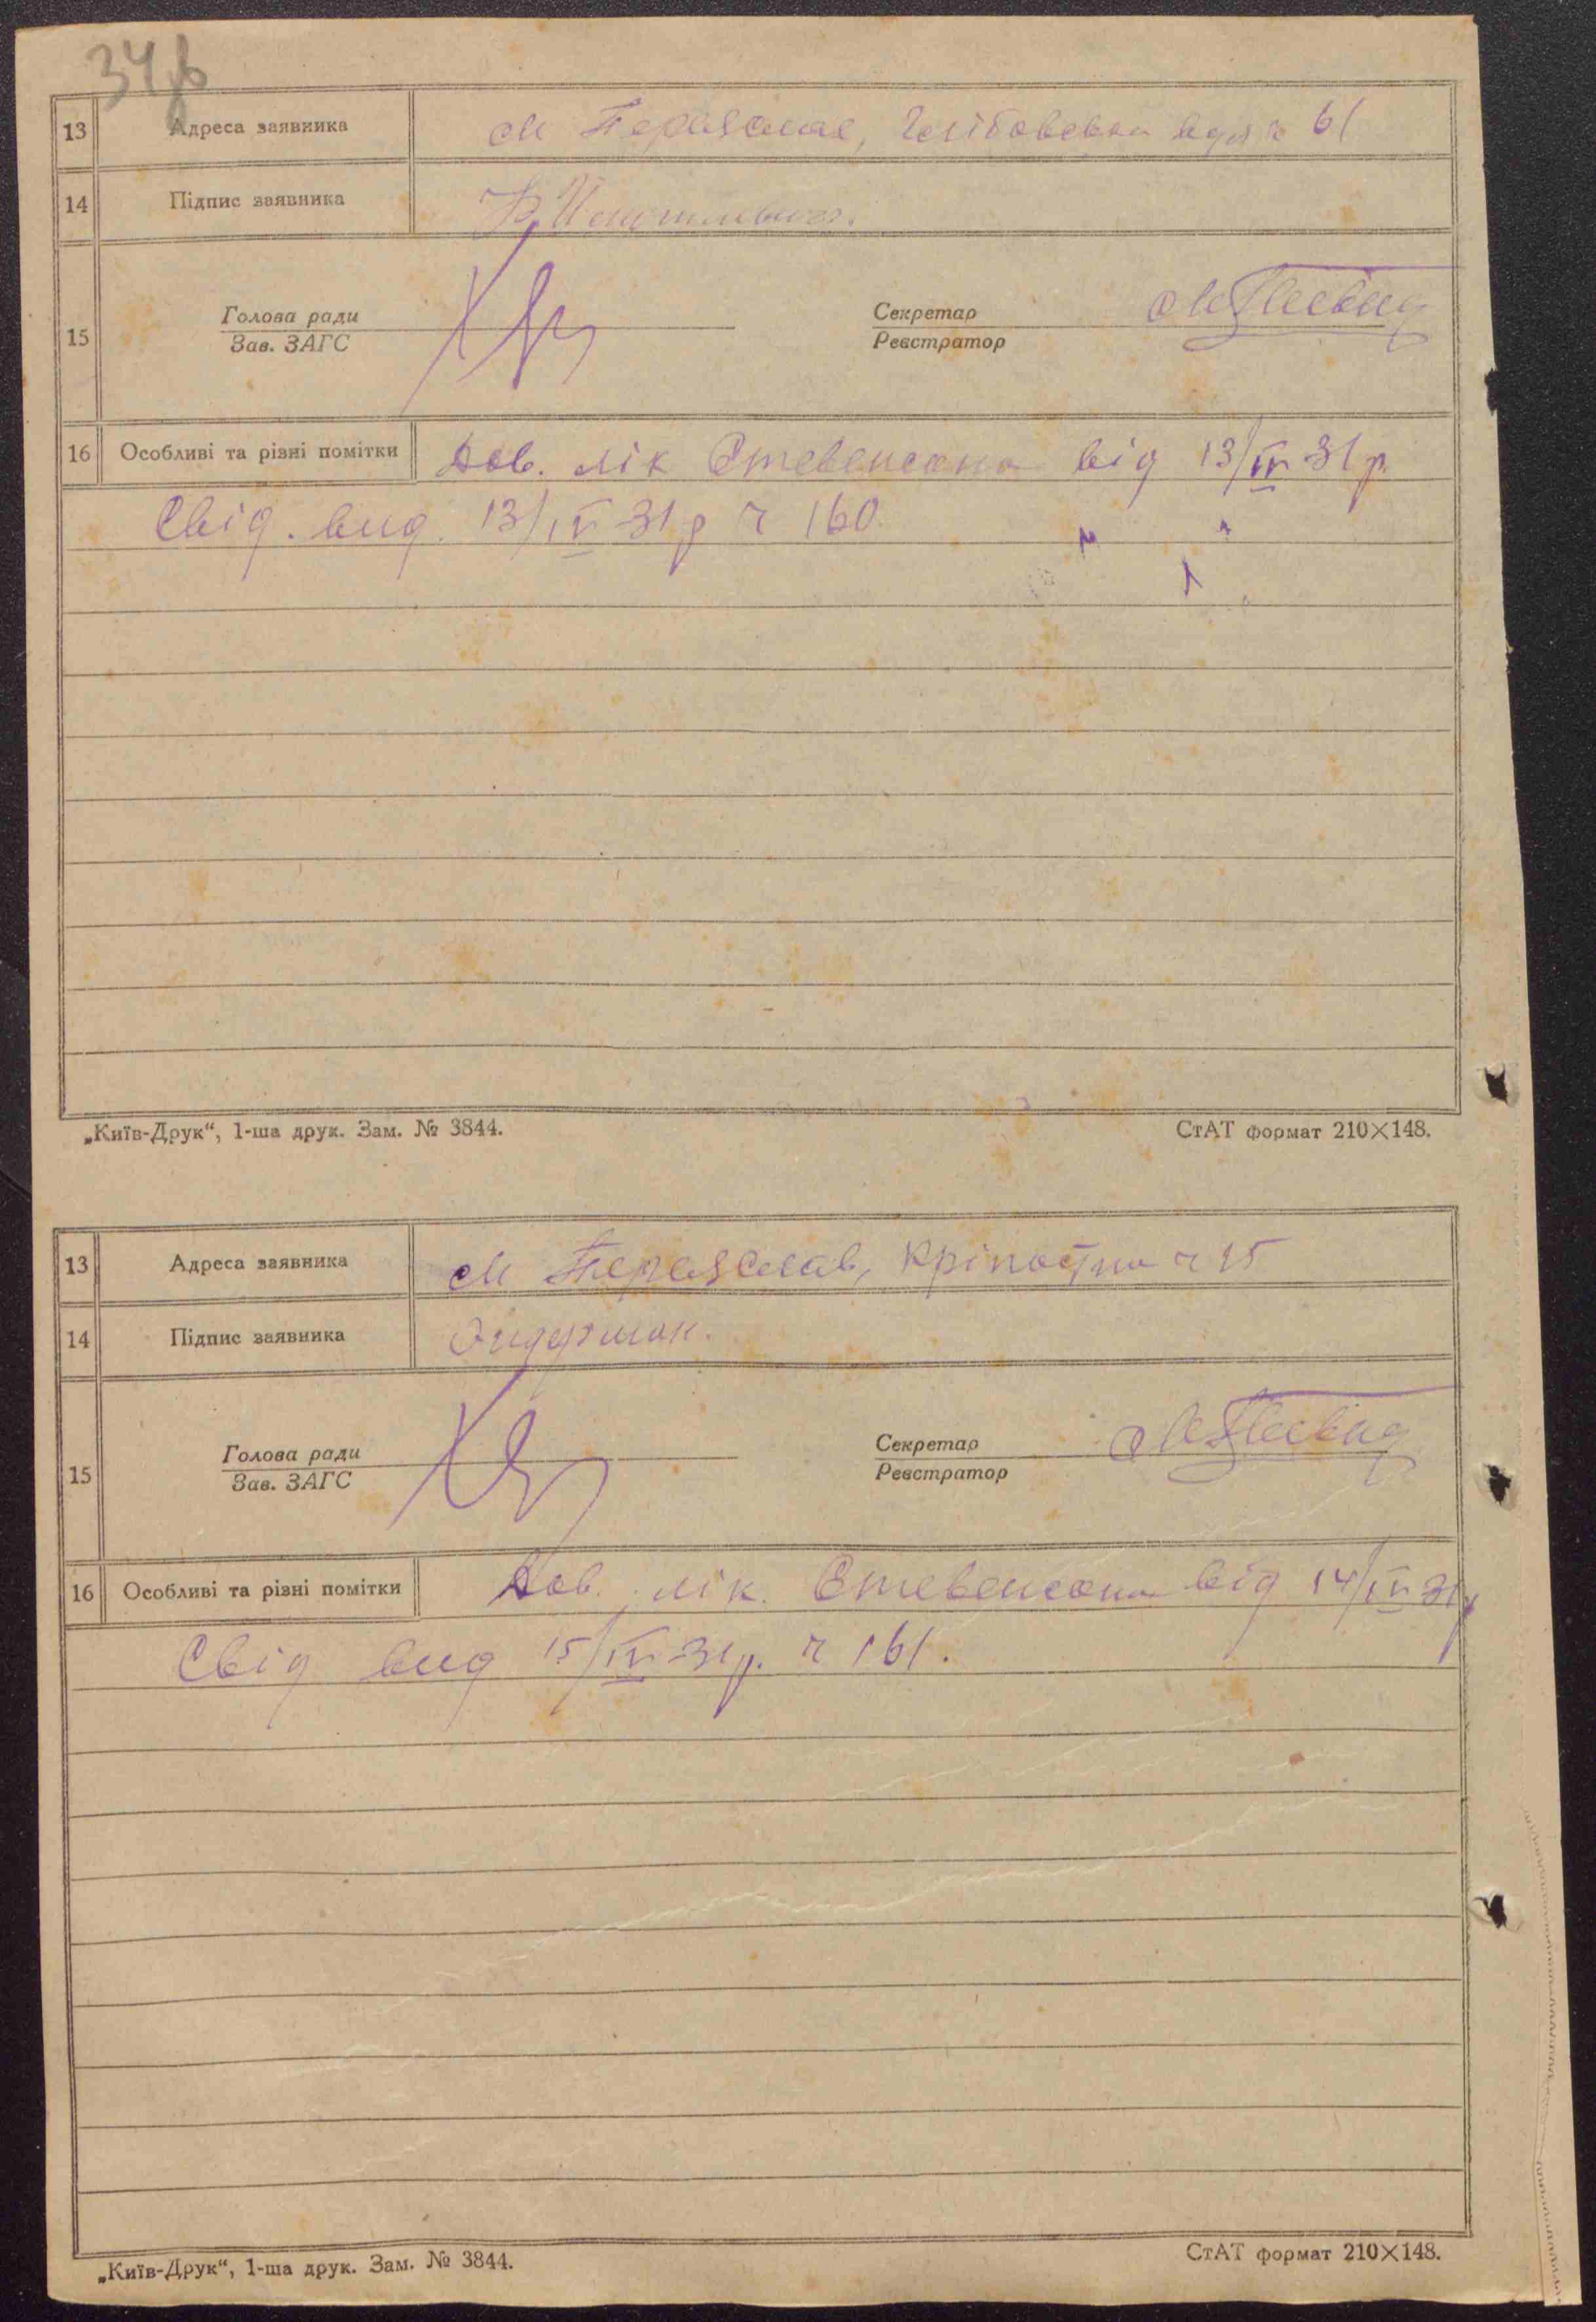 34
13 Адреса заявника м Переяслав, вул ч 61
14 Підпис заявника
15 Голова ради Секретар
Зав. ЗАГС Реєстратор
16 Особливі та різні помітки Дов. лік Стевенсона від 13/IV 31 р.
Свід. вид. 13/IV 31 р ч 160
„Київ-Друк“, 1-ша друк. Зам. № 3844. СтАТ формат 210×148.
13 Адреса заявника м Переяслав, Кріпостна ч
14 Підпис заявника
15 Голова ради Секретар
Зав. ЗАГС Реєстратор
16 Особливі та різні помітки Дов. лік. Стевенсона від 14/IV 31 р
Свід вид 15/IV 31 р. ч 161.
„Київ-Друк“, 1-ша друк. Зам. № 3844. СтАТ формат 210×148.